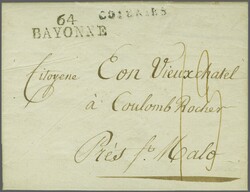 64
BAYONNE
Citoyene Eon Vieuxchatel
à Coulomb Rocher
Prés St. Malo